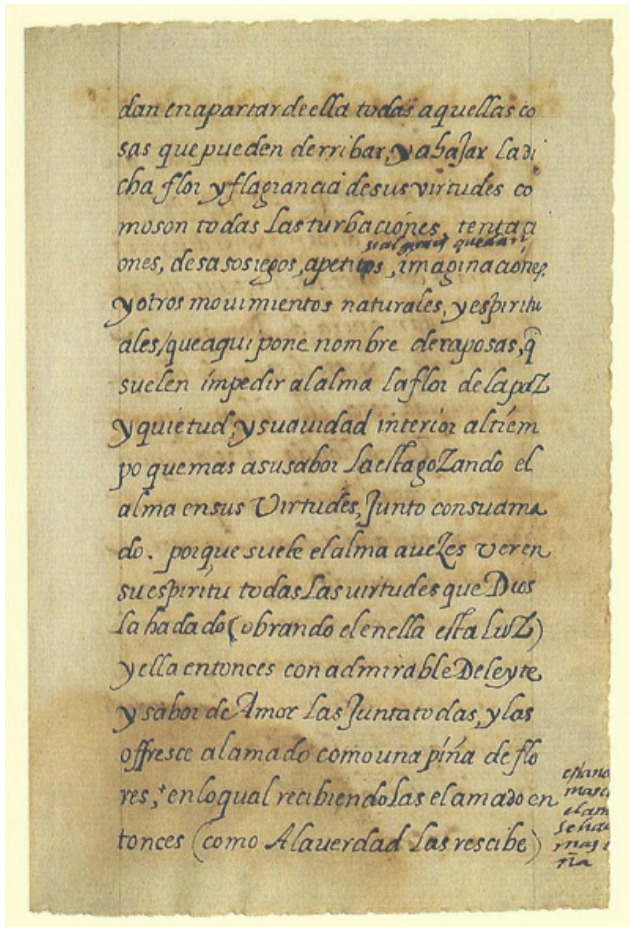 dan en apartar de ella todas aquellas co
sas que pueden derribar, y ahajar la di
cha flor y flagrancia de sus virtudes co
mo son todas las turbaciones, tentaci
si algunos quedan
ones, desasosiegos, apetitos, imaginaciones,
y otros movimientos naturales, y espiritu
ales, que aqui pone nombre de raposas, q̃
suelen impedir al alma la flor de la paz
y quietud, y suauidad interior al tiem
po que mas a su sabor la esta gozando el
alma en sus Virtudes, Junto con su ama
do. porque suele el alma a uezes ver en
su espiritu todas las virtudes que Dios
la ha dado (obrando el en ella esta luz)
y ella entonces con admirable Deleyte
y sabor de Amor las Junta todas, y las
offresce al amado como una piña de flo
res, + en lo qual recibiendo las el amado en
tonces (como A la uerdad las rescibe)
mas